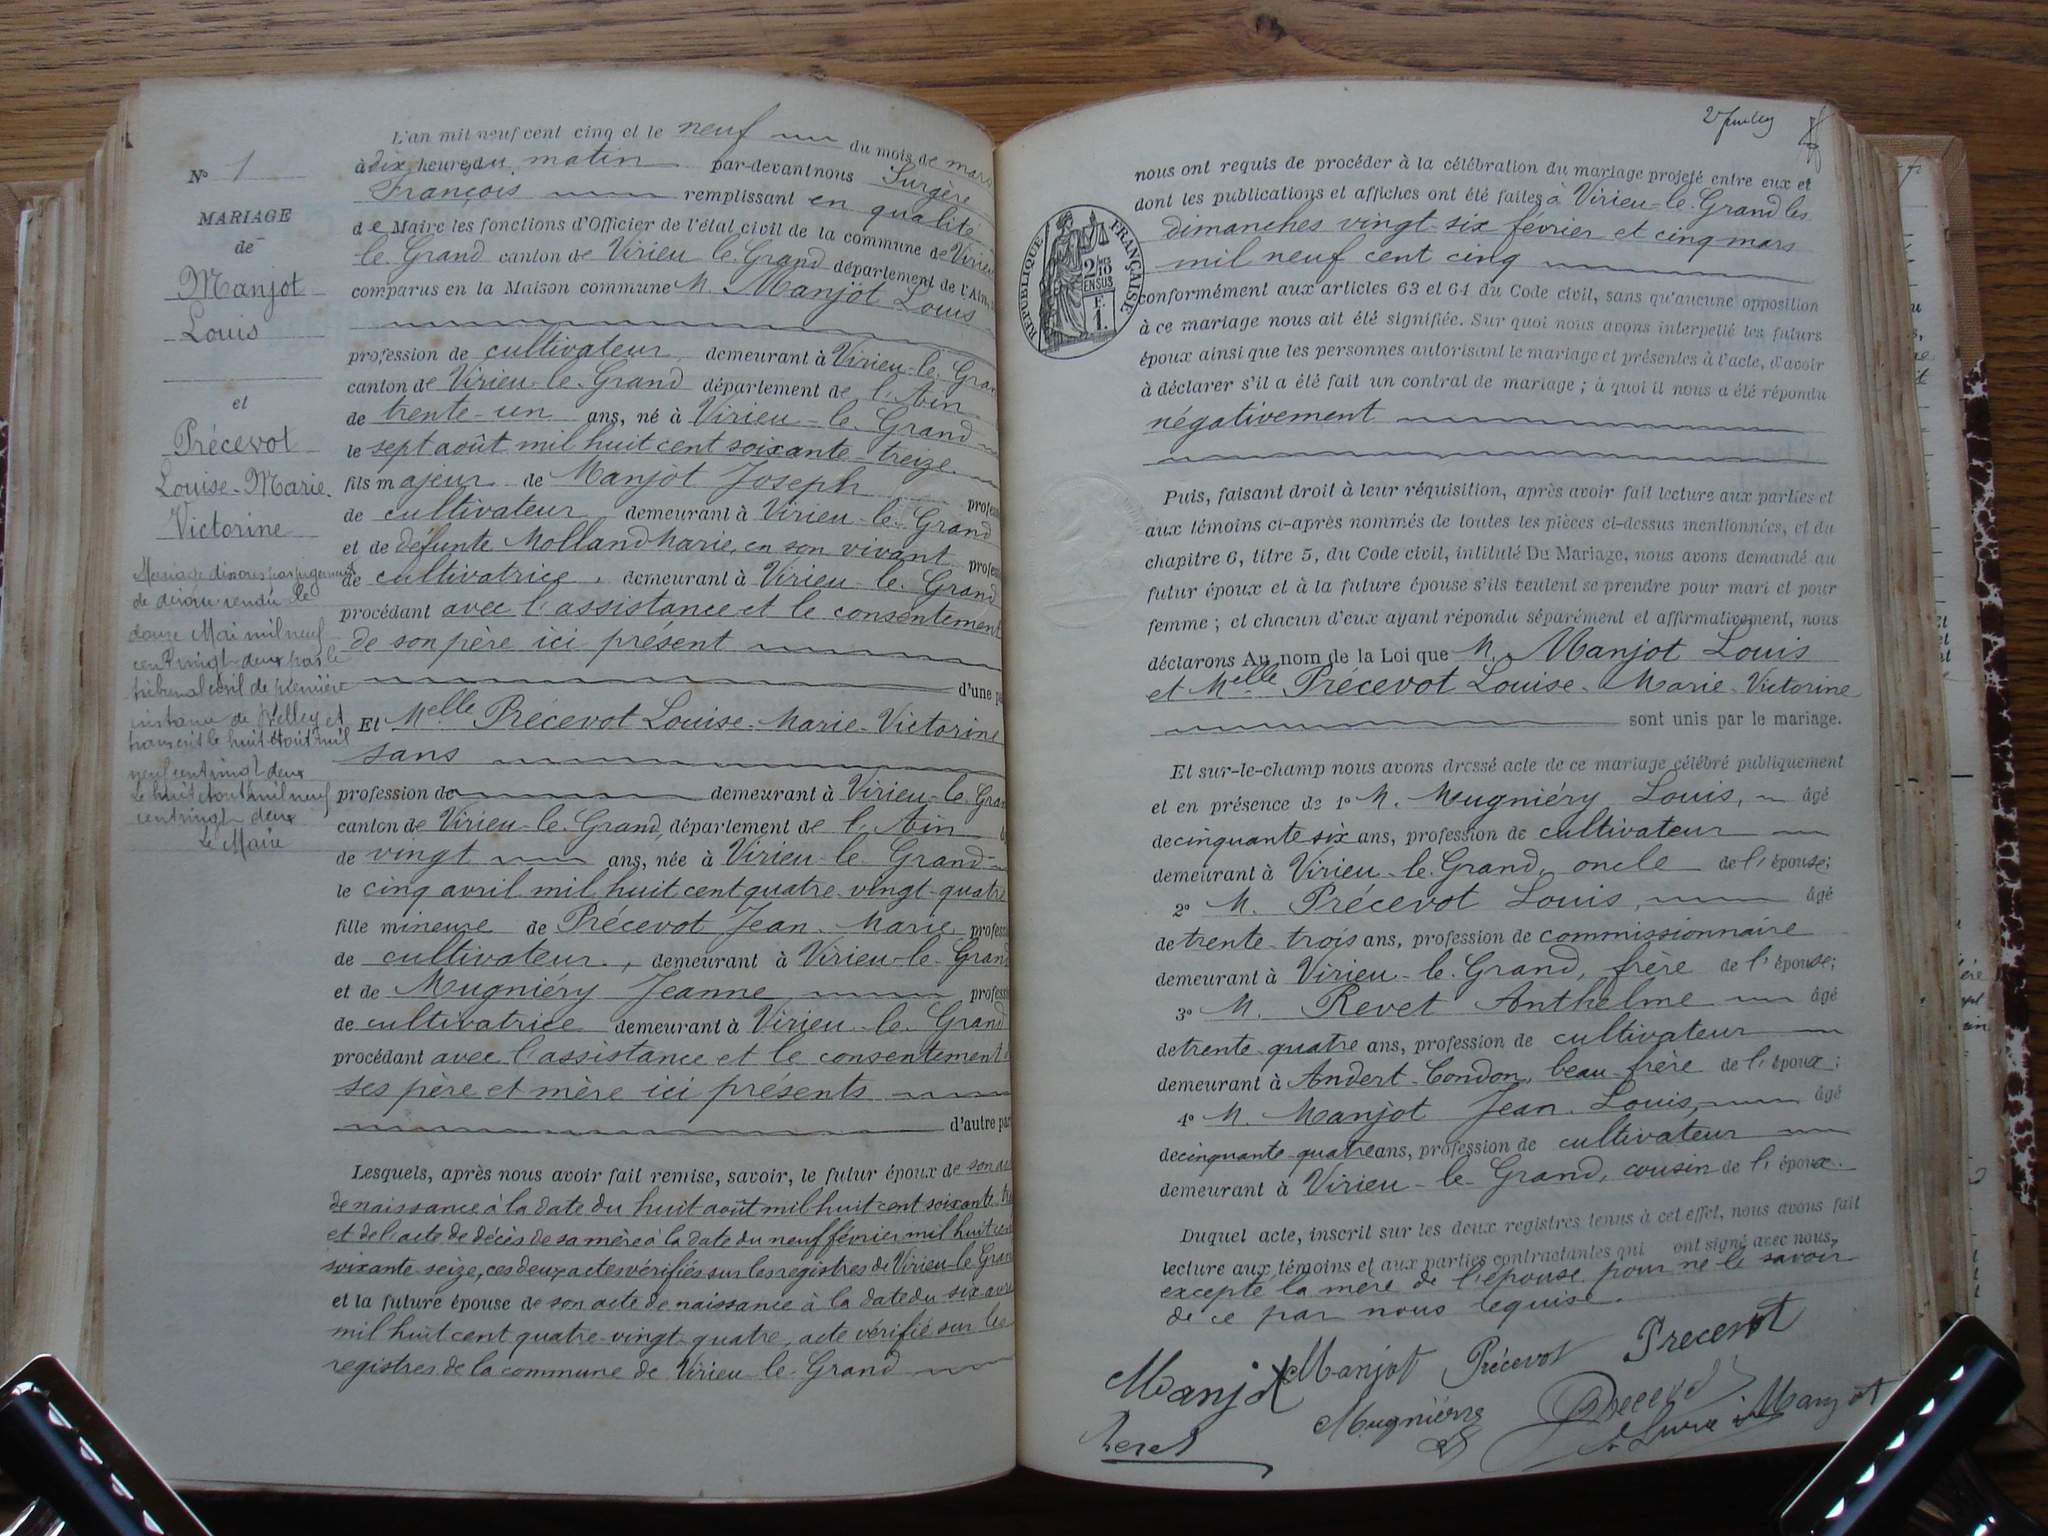 N° 1
MARIAGE
de
Manjot
Louis
et
Précevot
Louise-Marie
Victorine
Mariage dissous par jugement
de divorce rendu le
douze Mai mil neuf
cent vingt-deux par le
tribunal civil de première
instance de Belley et
transcrit le huit Août mil
neuf cent vingt deux
Le huit Août mil neuf
cent vingt deux
Le Maire
L'an mil neuf cent cinq et le neuf du mois de mars
à dix heures du matin par-devant nous Surgère
François remplissant en qualité
de Maire les fonctions d'Officier de l'état civil de la commune de Virieu
le Grand canton de Virieu le Grand département de l'Ain,
comparus en la Maison commune M. Manjot Louis
profession de cultivateur demeurant à Virieu-le-Gran
canton de Virieu-le-Grand département de l'Ain
de trente-un ans, né à Virieu-le-Grand
le sept août mil huit cent soixante-treize
fils majeur de Manjot Joseph profess
de cultivateur, demeurant à Virieu-le-Grand
et de défunte Molland Marie, en son vivant profess
de cultivatrice, demeurant à Virieu-le-Grand
procédant avec l'assistance et le consentement
de son père ici présent
d'une pa
Et Melle Précevot Louise-Marie-Victorine
sans
profession de demeurant à Virieu-le-Gran
canton de Virieu-le-Grand, département de l'Ain
de vingt ans, née à Virieu-le-Grand
le cinq avril mil huit cent quatre-vingt-quatre
fille mineure de Précevot Jean-Marie profess
de cultivateur, demeurant à Virieu-le-Grand
et de Mugniéry Jeanne profess
de cultivatrice demeurant à Virieu-le-Grand
procédant avec l'assistance et le consentement
ses père et mère ici présents
d'autre par
Lesquels, après nous avoir fait remise, savoir, le futur époux de son ac
de naissance à la date du huit août mil huit cent soixante-tre
et de l'acte de décès de sa mère à la date du neuf février mil huit cent
soixante-seize, ces deux actes vérifiés sur les registres de Virieu-le-Gran
et la future épouse de son acte de naissance à la date du six avril
mil huit cent quatre-vingt-quatre, acte vérifié sur les
registres de la commune de Virieu-le-Grand
nous ont requis de procéder à la célébration du mariage projeté entre eux et
dont les publications et affiches ont été faites à Virieu-le-Grand les
dimanches vingt-six février et cinq mars
mil neuf cent cinq
RÉPUBLIQUE FRANÇAISE
EN SUS
F.
1.
conformément aux articles 63 et 64 du Code civil, sans qu'aucune opposition
à ce mariage nous ait été signifiée. Sur quoi nous avons interpellé les futurs
époux ainsi que les personnes autorisant le mariage et présentes à l'acte, d'avoir
à déclarer s'il a été fait un contrat de mariage ; à quoi il nous a été répondu
négativement
Puis, faisant droit à leur réquisition, après avoir fait lecture aux parties et
aux témoins ci-après nommés de toutes les pièces ci-dessus mentionnées, et du
chapitre 6, titre 5, du Code civil, intitulé Du Mariage, nous avons demandé au
futur époux et à la future épouse s'ils veulent se prendre pour mari et pour
femme ; et chacun d'eux ayant répondu séparément et affirmativement, nous
déclarons Au nom de la Loi que M. Manjot Louis
et Melle Précevot Louise-Marie-Victorine
sont unis par le mariage.
Et sur-le-champ nous avons dressé acte de ce mariage célébré publiquement
et en présence de 1° M. Mugniéry Louis, âgé
de cinquante six ans, profession de cultivateur
demeurant à Virieu-le-Grand, oncle de l'épouse;
2° M. Précevot Louis, âgé
de trente-trois ans, profession de commissionnaire
demeurant à Virieu-le-Grand, frère de l'épouse;
3° M. Revet Anthelme âgé
de trente quatre ans, profession de cultivateur
demeurant à Andert-Condon, beau-frère de l'époux;
4° M. Manjot Jean-Louis, âgé
de cinquante-quatre ans, profession de cultivateur
demeurant à Virieu-le-Grand, cousin de l'époux.
Duquel acte, inscrit sur les deux registres tenus à cet effet, nous avons fait
lecture aux témoins et aux parties contractantes qui ont signé avec nous,
excepté la mère de l'épouse pour ne le savoir
de ce par nous requise.
Manjot Manjot Précevot Precevot
Mugniery Precevot Manjot
Revet